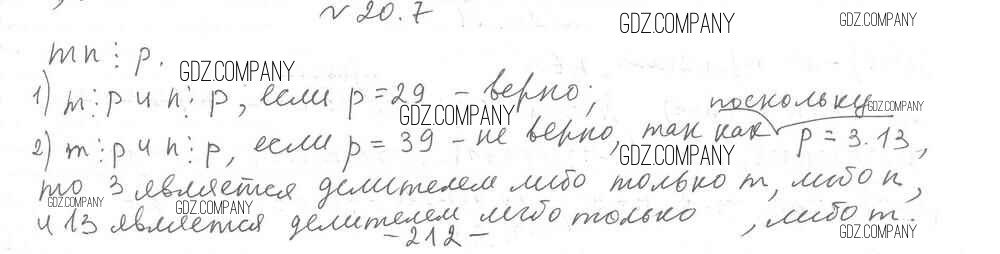 № 20.7
GDZ.COMPANY GDZ.COMPANY
mn ⋮ p.
GDZ.COMPANY
1) m ⋮ p и n ⋮ p, если p = 29 – верно;
GDZ.COMPANY поскольку GDZ.COMPANY
2) m ⋮ p и n ⋮ p, если p = 39 – не верно, так как p = 3·13,
GDZ.COMPANY
то 3 является делителем либо только m, либо n,
GDZ.COMPANY GDZ.COMPANY
и 13 является делителем либо только , либо m.
GDZ.COMPANY
– 212 –